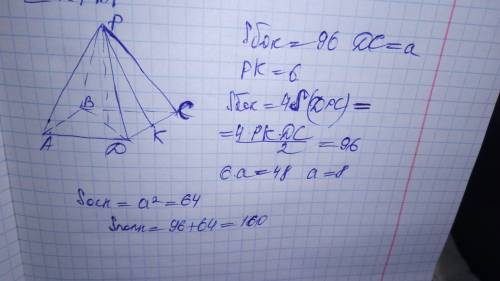 P
B
C
A
D
K
Sбок = 96 DC = a
PK = 6
Sбок = 4S(DPC) =
= 4 PK·DC / 2 = 96
6a = 48 a = 8
Sосн = a² = 64
Sполн = 96 + 64 = 160